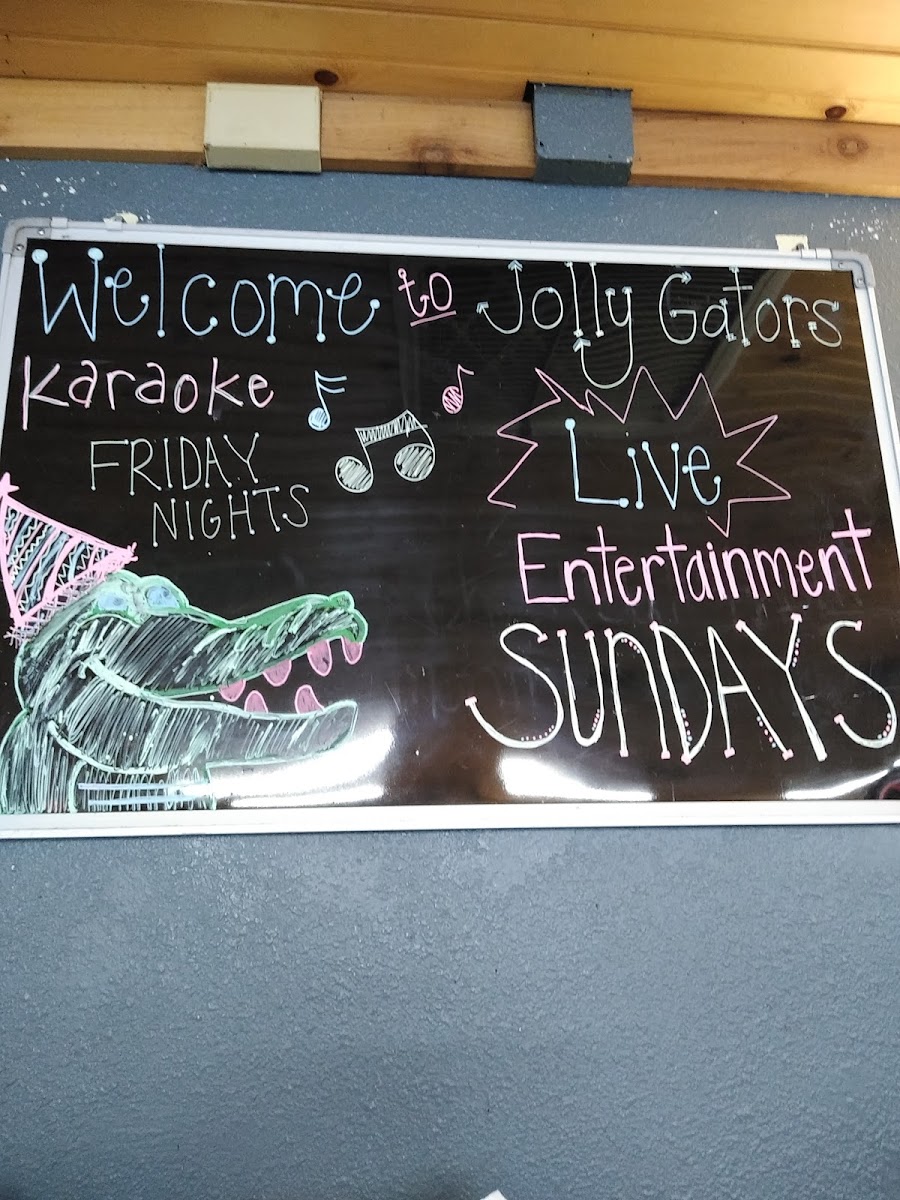 Welcome to Jolly Gators
Karaoke
FRIDAY
NIGHTS
Live
Entertainment
SUNDAYS